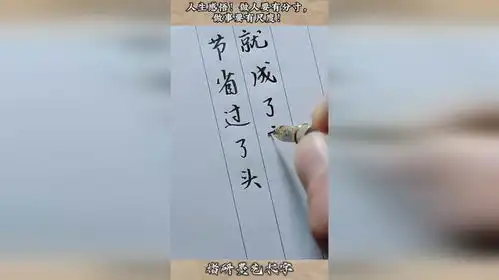 人生感悟！做人要有分寸，
做事要有尺度！
节省过了头
就成了